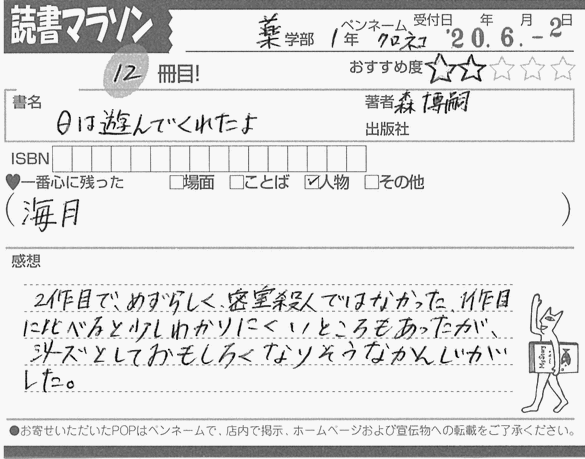 読書マラソン
薬学部 1年 ペンネーム クロネコ 受付日 '20年6.月-2日
12 冊目! おすすめ度 ☆☆☆☆☆
書名 θは遊んでくれたよ
著者 森博嗣
出版社
ISBN
♥一番心に残った □場面 □ことば ☑人物 □その他
(海月)
感想
2作目で、めずらしく、密室殺人ではなかった。1作目
に比べると少しわかりにくいところもあったが、
シリーズとしておもしろくなりそうなかんじが
した。
●お寄せいただいたPOPはペンネームで、店内で掲示、ホームページおよび宣伝物への転載をご了承ください。